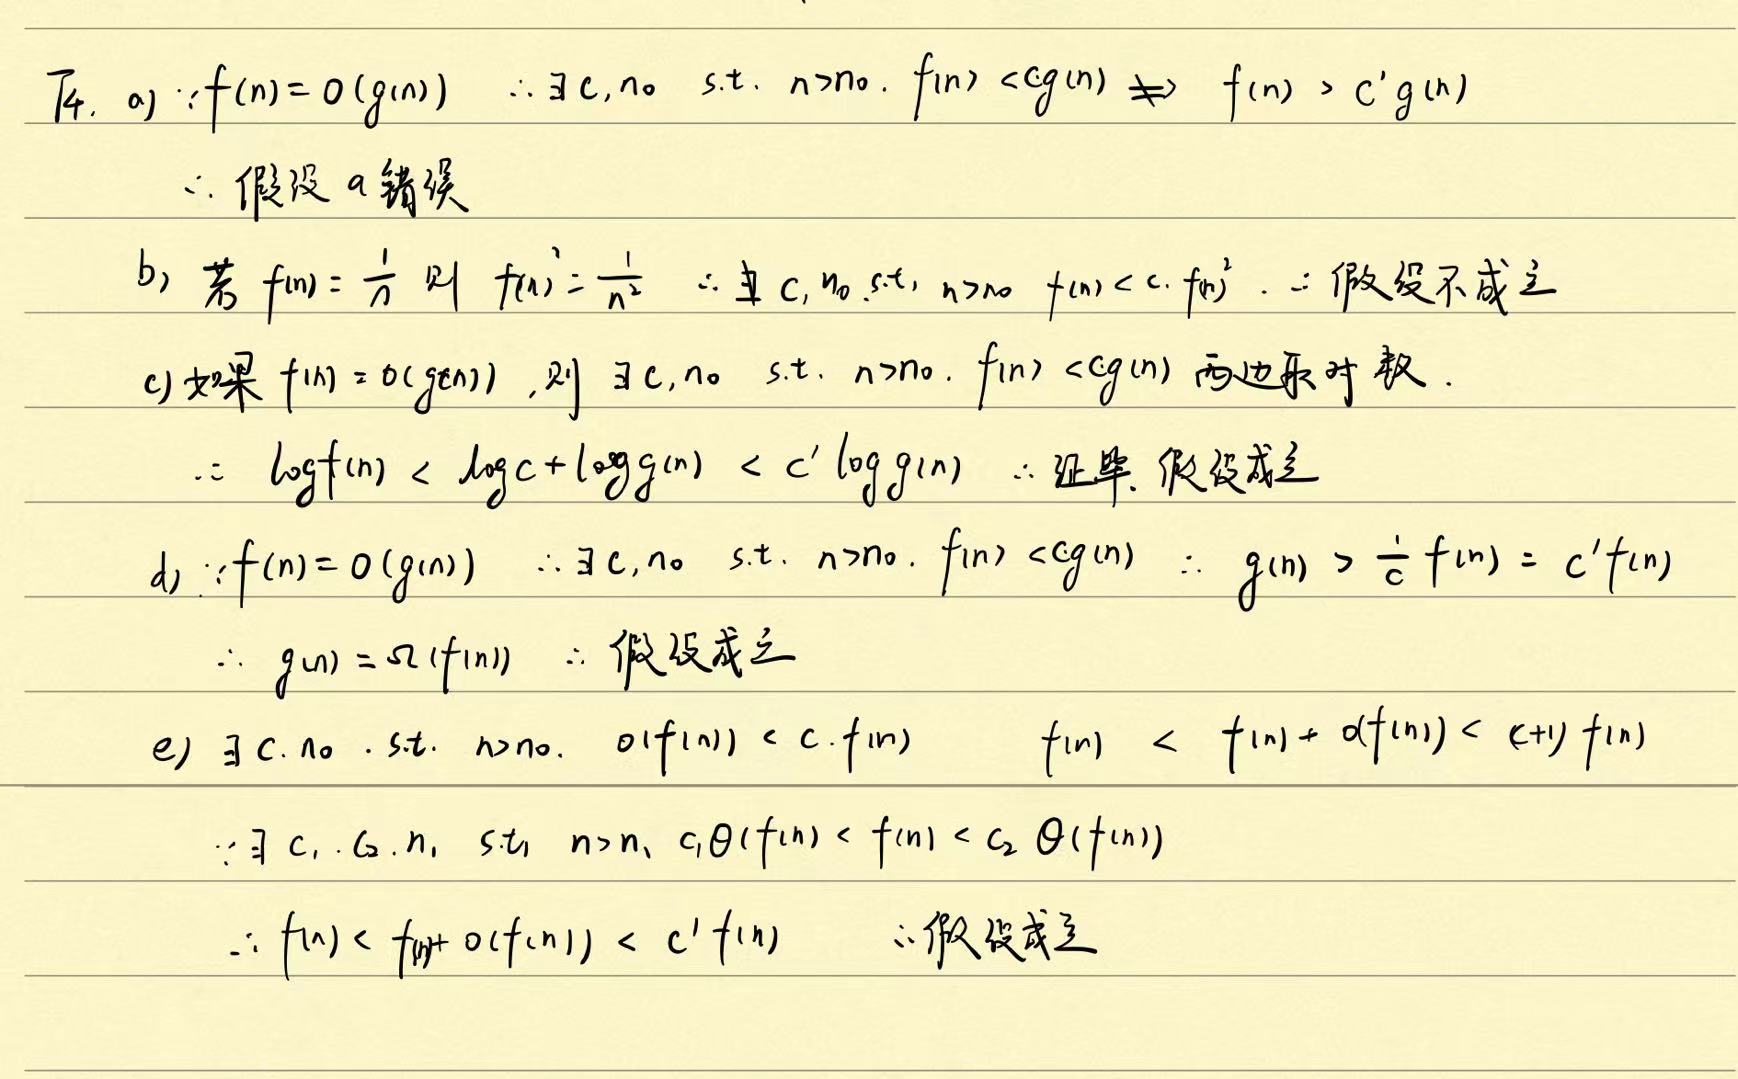 T4. a) ∵ f(n) = O(g(n)) ∴ ∃ c, n₀ s.t. n>n₀. f(n) < cg(n) ⇏ f(n) > c'g(n)
∴ 假设 a 错误
b) 若 f(n) = 1/n 则 f(n)² = 1/n² ∴ ∄ c, n₀ s.t. n>n₀ f(n) < c. f(n)². ∴ 假设不成立
c) 如果 f(n) = O(g(n)), 则 ∃ c, n₀ s.t. n>n₀. f(n) < cg(n) 两边取对数.
∴ log f(n) < log c + log g(n) < c' log g(n) ∴ 证毕. 假设成立
d) ∵ f(n) = O(g(n)) ∴ ∃ c, n₀ s.t. n>n₀. f(n) < cg(n) ∴ g(n) > 1/c f(n) = c'f(n)
∴ g(n) = Ω(f(n)) ∴ 假设成立
e) ∃ c. n₀. s.t. n>n₀. o(f(n)) < c. f(n) f(n) < f(n) + o(f(n)) < (c+1) f(n)
∵ ∃ c₁. c₂. n₁ s.t. n>n₁ c₁θ(f(n) < f(n) < c₂ θ(f(n))
∴ f(n) < f(n)+ o(f(n)) < c' f(n) ∴ 假设成立